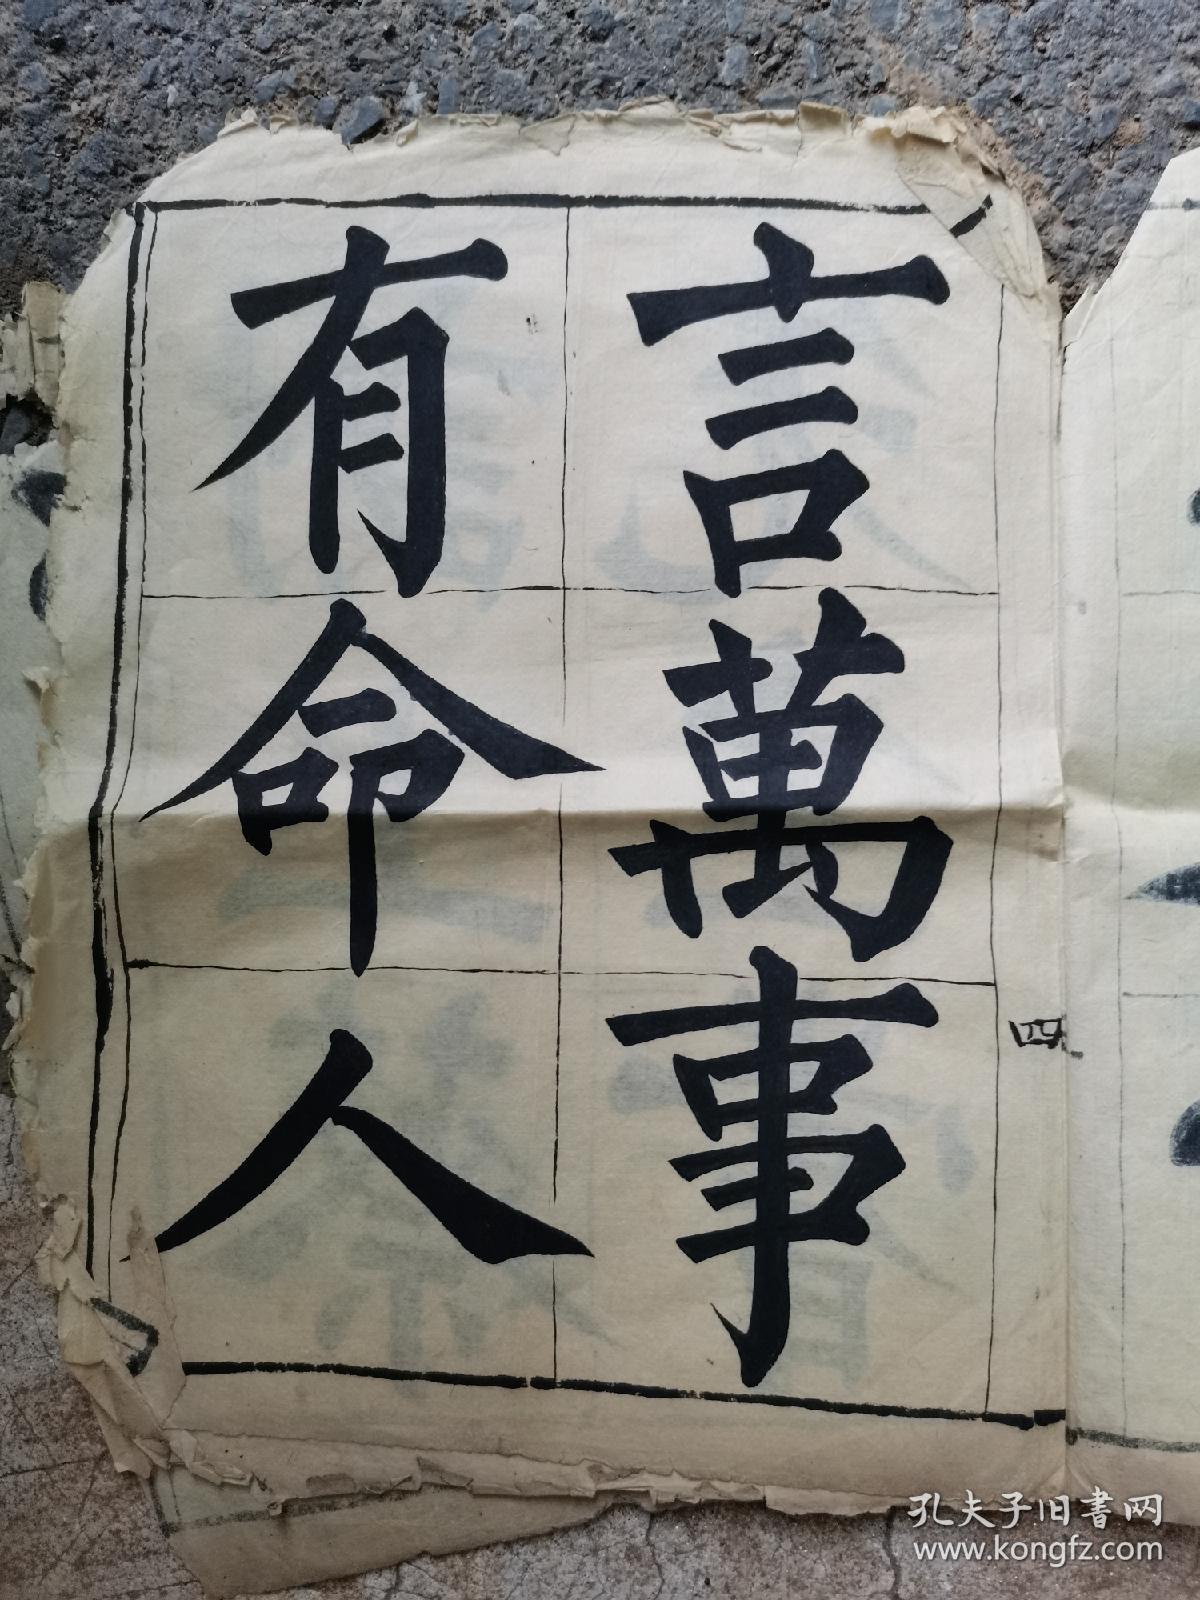 言萬事
有命人
四
孔夫子旧書网
www.kongfz.com